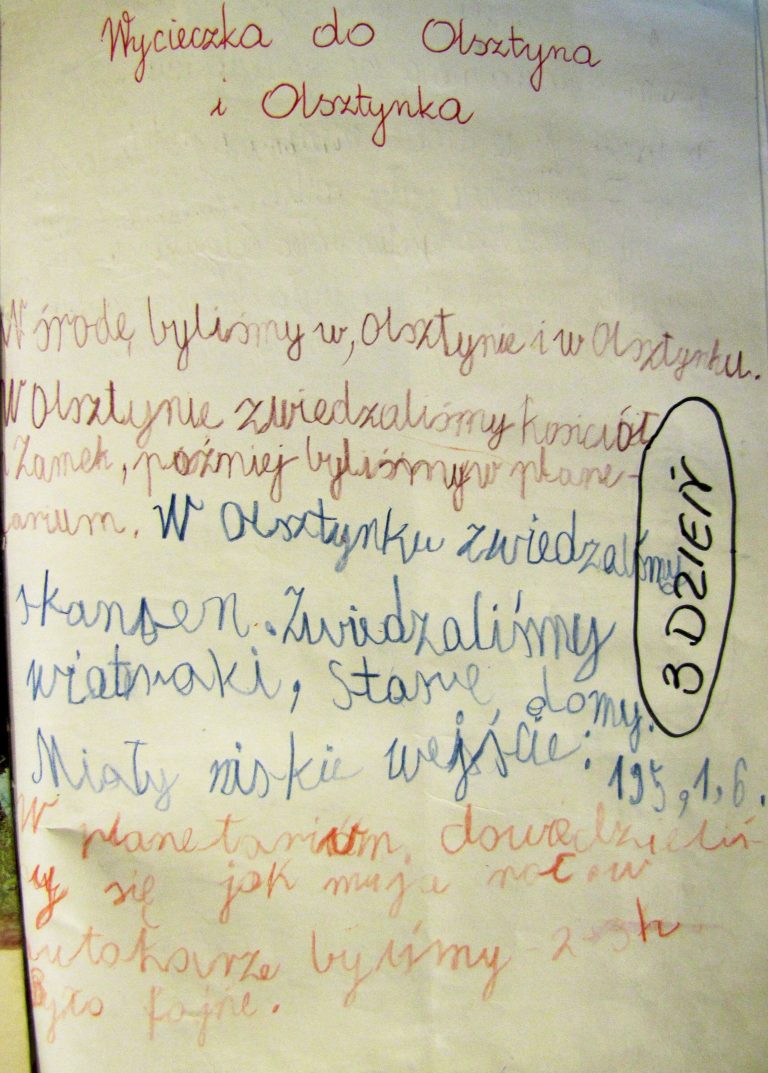 Wycieczka do Olsztyna
i Olsztynka
W środę byliśmy w, Olsztynie i w Olsztynku.
W Olsztynie zwiedzaliśmy kościół
i Zamek, poźniej byliśmy w plane-
tarium. W Olsztynku zwiedzaliśmy
skansen. Zwiedzaliśmy
wiatraki, Stare domy.
Miały niskie wejście: 195, 1,6.
W planetarium dowiedzieliś-
my się jak mija noc. w
autokarze byliśmy - 2-3h
Było fajne.
3 DZIEŃ